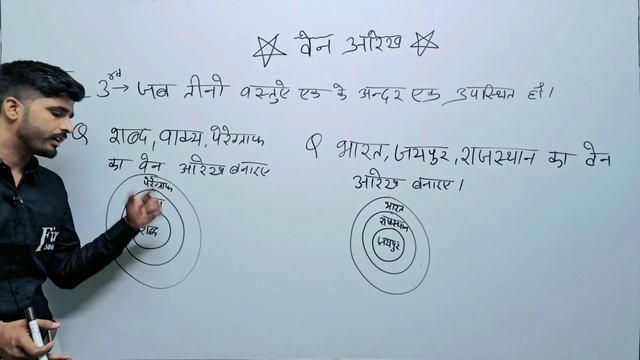 वेन आरेख
3rd → जब तीनो वस्तुऐ एक के अन्दर एक उपस्थित हों।
Q शब्द, वाक्य, पेरेग्राफ
का वेन आरेख बनाए
पेरेग्राफ
शब्द
Q भारत, जयपुर, राजस्थान का वेन
आरेख बनाए।
भारत
राजस्थान
जयपुर